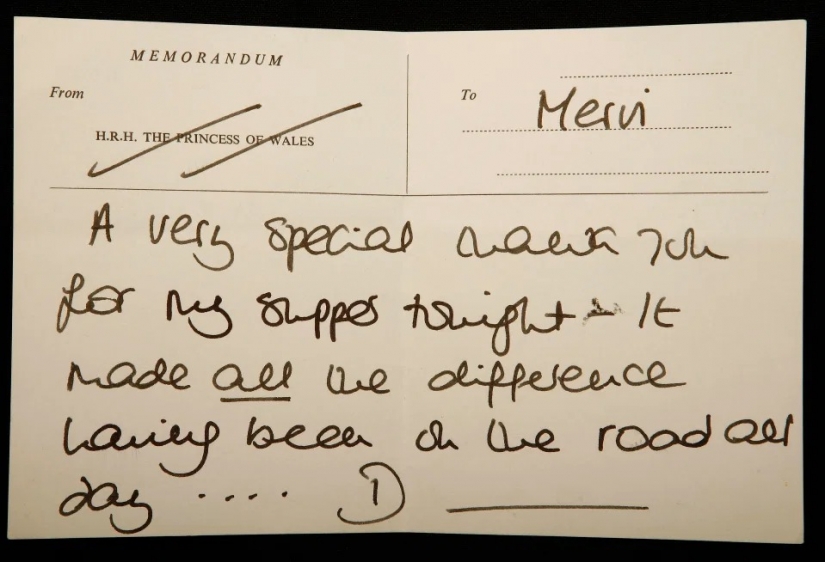 MEMORANDUM
From
H.R.H. THE PRINCESS OF WALES
To
Mervi
A very special thank you
for my supper tonight - It
made all the difference
having been on the road all
day .... D